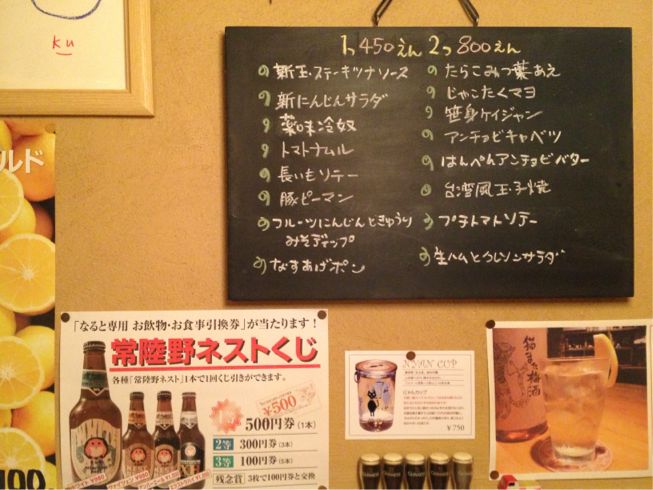 ku
1つ 450えん 2つ 800えん
新玉・ステーキツナソース
新にんじんサラダ
薬味冷奴
トマトナムル
長いもソテー
豚ピーマン
フルーツにんじんときゅうり
みそディップ
なすあげポン
たらこみつ葉あえ
じゃこたくマヨ
笹身ケイジャン
アンチョビキャベツ
はんぺんアンチョビバター
台湾風玉子焼
プチトマトソテー
生ハムとクレソンサラダ
ルド
00
「なると専用 お飲物・お食事引換券」が当たります！
常陸野ネストくじ
各種「常陸野ネスト」1本で1回くじ引きができます。
¥500
500円券(1本)
2等 300円券(3本)
3等 100円券(5本)
残念賞 3枚で100円券と交換
NYAN CUP
にゃんカップ
¥750
猫また梅酒